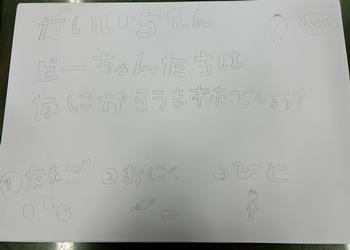 だいいちもん
ピーちゃんたちは
なにからうまれたでしょう?
①たまご ②おにく ③ひと